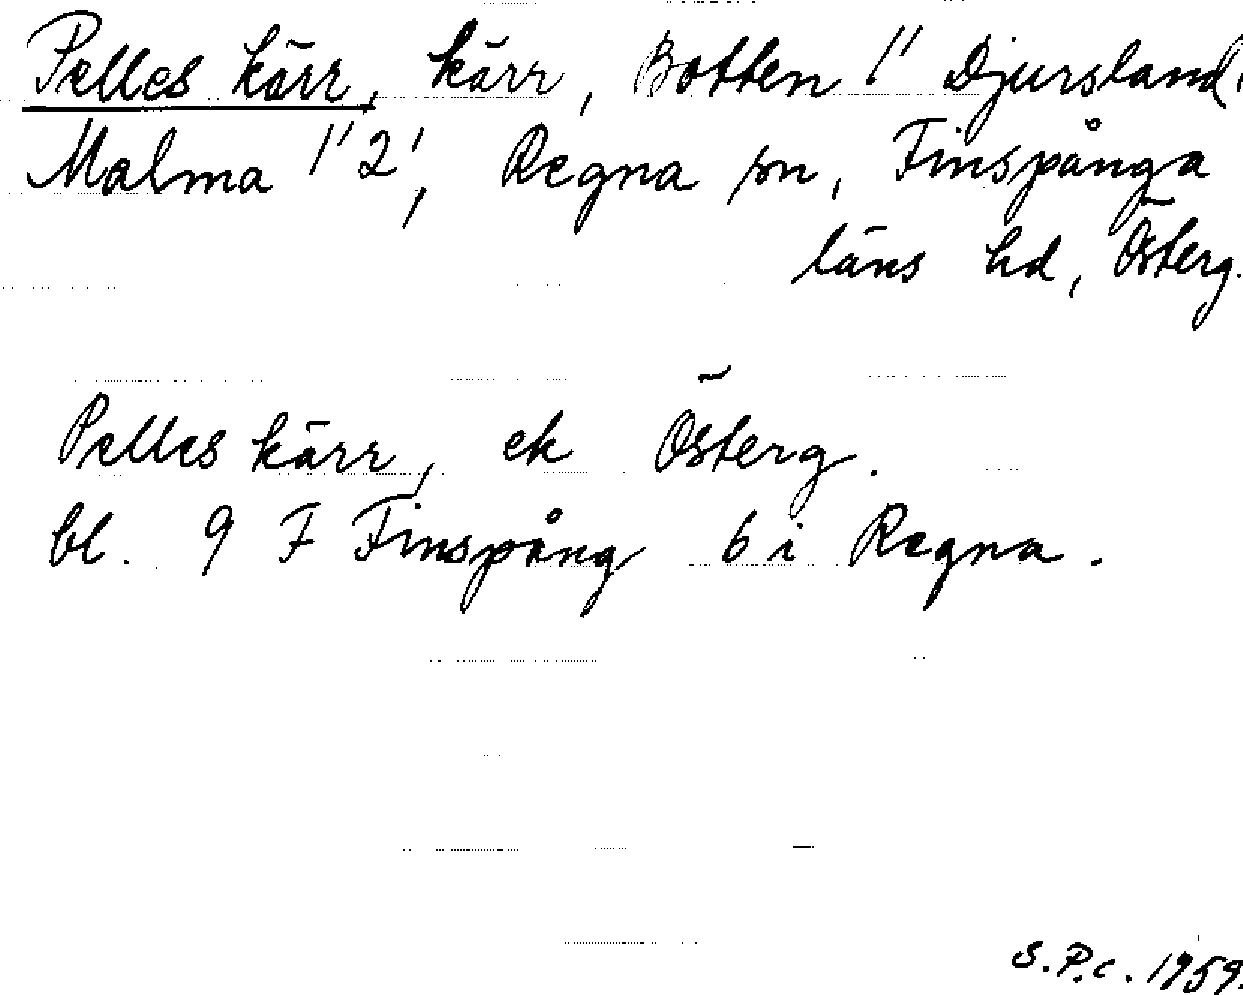 Pelles kärr, kärr, Botten 1' Djursland,
Malma 1' 2', Regna sn, Finspånga
läns hd, Österg.
Pelles kärr, ek Österg.
bl. 9 F Finspång 6 i Regna.
S.P.c. 1959.